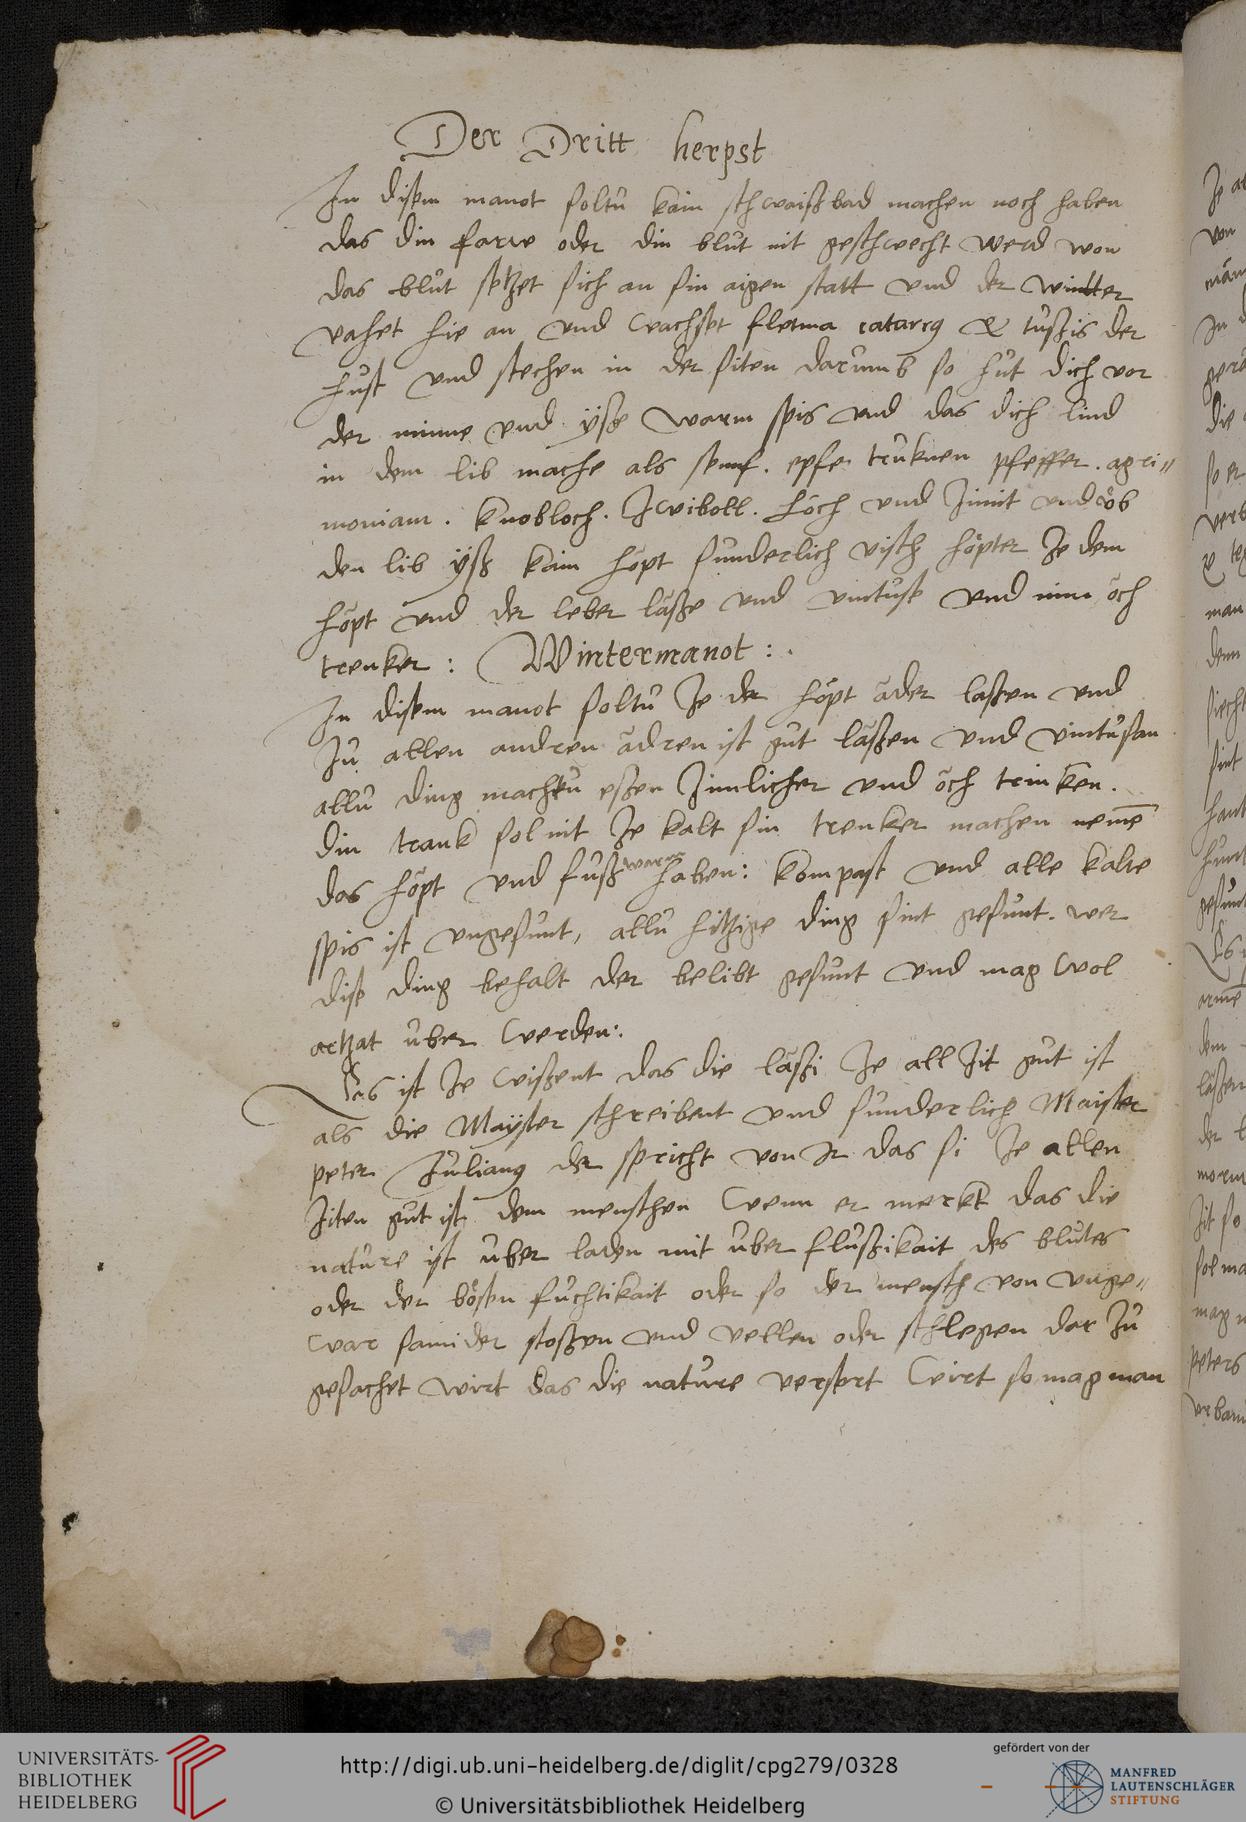 Der Dritt herpst
In disem manot soltu kain schwaissbad machen noch haben
das din farwe oder din blut nit geschwecht werd won
das blut setzet sich an sin aigen statt vnd der wintter
vahet hie an vnd wachset fletma catarrus & tussis der
hust vnd stechen in der siten darumb so hut dich vor
der minne vnd ysse warm spis vnd das dich lind
in dem lib mache als senf. epfe truknen pfeffer. agri„
moniam. knobloch. zwiboll. vnd zimit vnd
den lib yss kain höpt sunderlich visch höpter ze dem
höpt vnd der leber lässe vnd vintuse vnd nim öch
trenker : Wintermanot : .
In disem manot soltu ze der höpt ader lassen vnd
zu allen andren adren ist gut lässen vnd vintusan
allu ding machtu essen zimlicher vnd öch trinken.
din trank sol nit ze kalt sin trenker machen nemē
das höpt vnd fuss warm haben: kompast vnd alle kalte
spis ist vngesunt, allu hitzige ding sint gesunt. wer
dise ding behalt der belibt gesunt vnd mag wol
artzat uber werden:.
Es ist ze wissent das die lässi ze all zit gut ist
als die Mayster schreibent vnd sunderlich Maister
peter Julianus der spricht von ir das si ze allen
ziten gut ist dem menschen wenn er merkt das die
nature ist uber laden mit uber flussikait des blutes
oder der bösen fuchtikait oder so der mensch von vnge„
war stossen vnd vellen oder schlegen dar zu
gesachet wirt das die nature versert wirt so mag man
UNIVERSITÄTS-
BIBLIOTHEK
HEIDELBERG
http://digi.ub.uni-heidelberg.de/diglit/cpg279/0328
© Universitätsbibliothek Heidelberg
gefördert von der
MANFRED
LAUTENSCHLÄGER
STIFTUNG